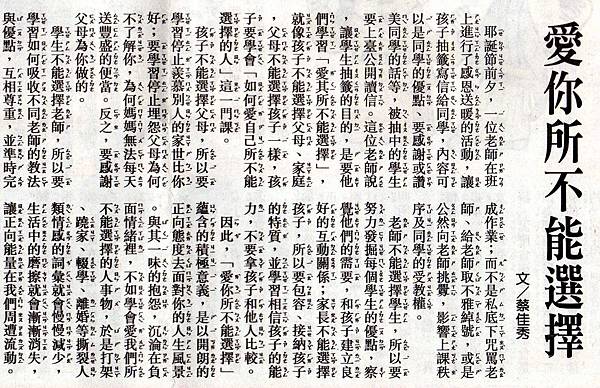 愛你所不能選擇
文／蔡佳秀
耶誕節前夕，一位老師在班
上進行了感恩送暖的活動，讓
孩子抽籤寫信給同學，內容可
以是同學的優點、要感謝或讚
美同學的話等，被抽中的學生
要上臺公開讀信。這位老師說
，讓學生抽籤的目的，是要他
們學習「愛其所不能選擇」，
就像孩子不能選擇父母、家庭
，父母不能選擇孩子一樣，孩
子要學會「如何愛自己所不能
選擇的人」這一門課。
孩子不能選擇父母，所以要
學習停止羨慕別人的家世比你
好；要學習停止埋怨父母為何
不了解你，為何媽媽無法每天
送豐盛的便當。反之，要感謝
父母為你做的。
學生不能選擇老師，所以要
學習如何吸收不同老師的教法
與優點，互相尊重，並準時完
成作業，而不是私底下咒罵老
師、給老師取不雅綽號，或是
公然向老師挑釁，影響上課秩
序及同學的受教權。
老師不能選擇學生，所以要
努力發掘每個學生的優點，察
覺他們的需要，和孩子建立良
好的互動關係；家長不能選擇
孩子，所以要包容、接納孩子
的特質，並學習相信孩子的能
力，不要拿孩子和他人比較。
因此，「愛你所不能選擇」
蘊含的積極意義，是以開朗的
正向態度去面對你的人生風景
。與其一味的抱怨，沉淪在負
面情緒裡，不如學會愛我們所
不能選擇的人事物，於是打架
、蹺家、輟學、離婚等撕裂人
類情感的詞彙就會慢慢減少，
生活中的磨擦就會漸漸消失，
讓正向能量在我們周遭流動。